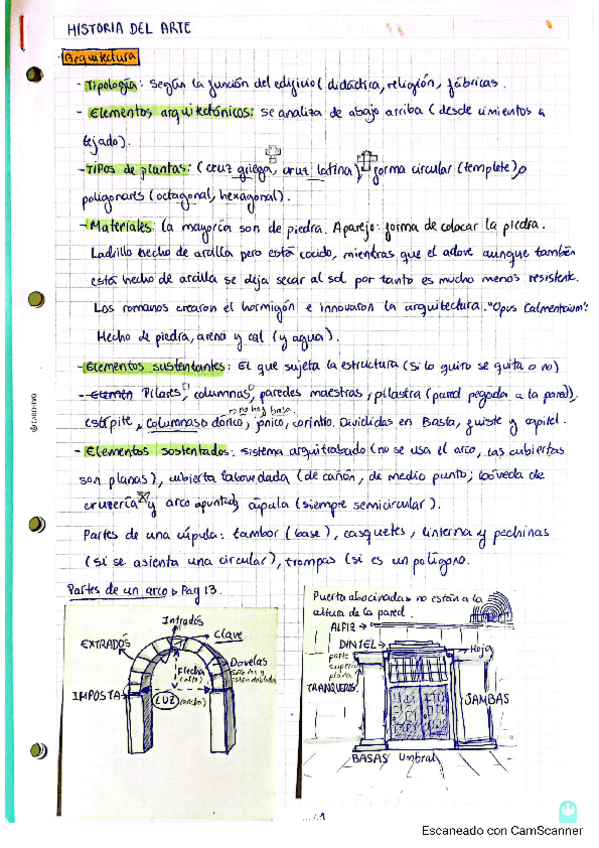 HISTORIA DEL ARTE
Arquitectura
- Tipología: Según la función del edificio (didáctica, religión, fábricas.
- Elementos arquitectónicos: se analiza de abajo arriba (desde cimientos a
tejado).
- Tipos de plantas: (cruz griega, cruz latina), forma circular (templete) o
poligonares (octagonal, hexagonal).
- Materiales: la mayoría son de piedra. Aparejo: forma de colocar la piedra.
Ladrillo hecho de arcilla pero está cocido, mientras que el adove aunque también
está hecho de arcilla se deja secar al sol por tanto es mucho menos resistente.
Los romanos crearon el hormigón e innovaron la arquitectura. "Opus Caimentaium":
Hecho de piedra, arena y cal (y agua).
- Elementos sustentantes: El que sujeta la estructura (si lo quiro se quita o no)
- Elemen Pilares, columnas, paredes maestras, pilastra (pared pegada a la pared),
→ no hay basa.
estípite, columnas dórico, jónico, corintio. Divididas en Basta, fuiste y capitel.
- Elementos sostentados: sistema arquitrabado (no se usa el arco, las cubiertas
son planas), cubierta abovedada (de cañón, de medio punto; bóveda de
crucería y arco apuntado, cúpula (siempre semicircular).
Partes de una cúpula: tambor (base), casquetes, linterna y pechinas
(si se asienta una circular), trompas (si es un polígono.
Partes de un arco → Pag 13.
Intradós
Clave
EXTRADÓS
Dovelas
Flecha
(alto)
IMPOSTA
LUZ (ancho)
Puerta abocinadas no están a la
altura de la pared.
ALFIZ →
DINTEL →
parte
superior
plana
Hoja
TRANQUEROS
JAMBAS
BASAS Umbral
1
CUADERNO
Escaneado con CamScanner